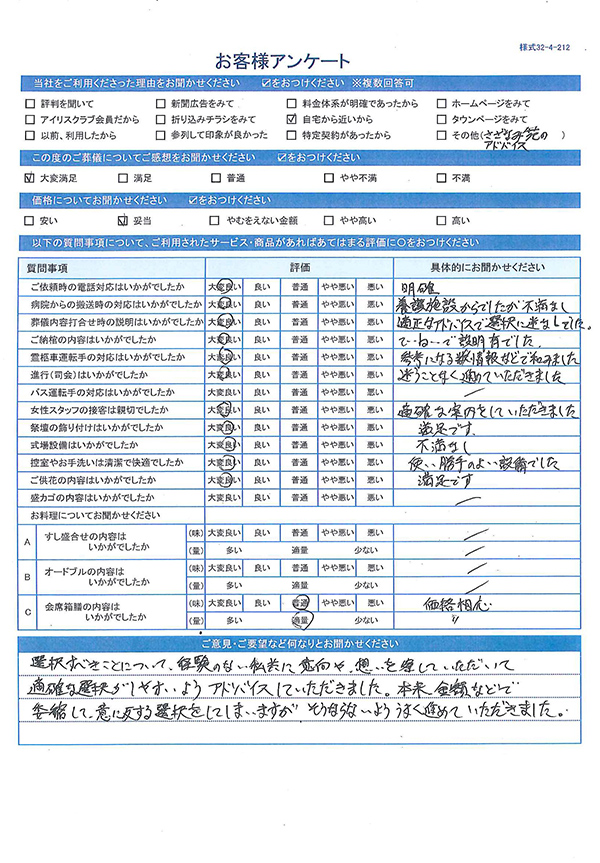 様式32-4-212
お客様アンケート
当社をご利用くださった理由をお聞かせください ☑をおつけください ※複数回答可
□ 評判を聞いて □ 新聞広告をみて □ 料金体系が明確であったから □ ホームページをみて
□ アイリスクラブ会員だから □ 折り込みチラシをみて ☑ 自宅から近いから □ タウンページをみて
□ 以前、利用したから □ 参列して印象が良かった □ 特定契約があったから □ その他(さざなみ苑のアドバイス)
この度のご葬儀についてご感想をお聞かせください ☑をおつけください
☑ 大変満足 □ 満足 □ 普通 □ やや不満 □ 不満
価格についてお聞かせください ☑をおつけください
□ 安い ☑ 妥当 □ やむをえない金額 □ やや高い □ 高い
以下の質問事項について、ご利用されたサービス・商品があればあてはまる評価に○をおつけください
質問事項 評価 具体的にお聞かせください
ご依頼時の電話対応はいかがでしたか 大変良い 良い 普通 やや悪い 悪い 明確
病院からの搬送時の対応はいかがでしたか 大変良い 良い 普通 やや悪い 悪い 養護施設からでしたが不満なし
葬儀内容打合せ時の説明はいかがでしたか 大変良い 良い 普通 やや悪い 悪い 適正なアドバイスで選択に迷なしでした。
ご納棺の内容はいかがでしたか 大変良い 良い 普通 やや悪い 悪い ていねいで説明有でした。
霊柩車運転手の対応はいかがでしたか 大変良い 良い 普通 やや悪い 悪い 参考になる 情報などで和みました
進行(司会)はいかがでしたか 大変良い 良い 普通 やや悪い 悪い 迷うことなく進めていただきました
バス運転手の対応はいかがでしたか 大変良い 良い 普通 やや悪い 悪い
女性スタッフの接客は親切でしたか 大変良い 良い 普通 やや悪い 悪い 適確な案内をしていただきました
祭壇の飾り付けはいかがでしたか 大変良い 良い 普通 やや悪い 悪い 満足です。
式場設備はいかがでしたか 大変良い 良い 普通 やや悪い 悪い 不満なし
控室やお手洗いは清潔で快適でしたか 大変良い 良い 普通 やや悪い 悪い 使い勝手のよい設備でした
ご供花の内容はいかがでしたか 大変良い 良い 普通 やや悪い 悪い 満足です
盛カゴの内容はいかがでしたか 大変良い 良い 普通 やや悪い 悪い
お料理についてお聞かせください
A すし盛合せの内容は (味) 大変良い 良い 普通 やや悪い 悪い
いかがでしたか (量) 多い 適量 少ない
B オードブルの内容は (味) 大変良い 良い 普通 やや悪い 悪い
いかがでしたか (量) 多い 適量 少ない
C 会席箱膳の内容は (味) 大変良い 良い 普通 やや悪い 悪い 価格相応
いかがでしたか (量) 多い 適量 少ない 〃
ご意見・ご要望など何なりとお聞かせください
選択すべきことについて、経験のない私共に意向や、想いを察していただいて
適確な選択がしやすいようアドバイスしていただきました。本来金額などで
委縮して、意に反する選択をしてしまいますが そうならないようすすめていただきました。